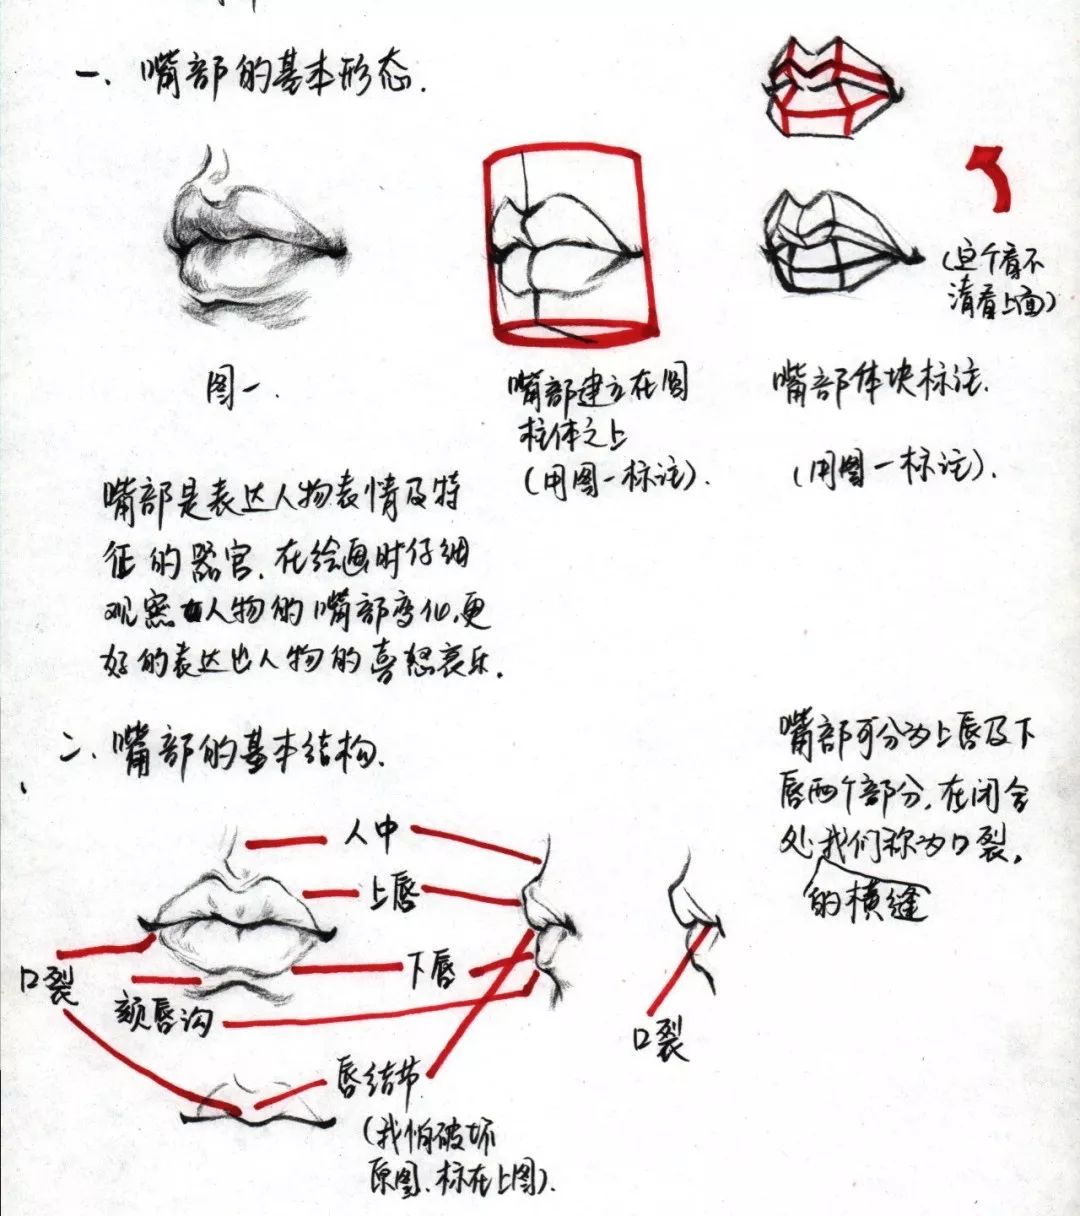 一、嘴部的基本形态.
(这个看不
清看上面)
图一
嘴部建立在圆
柱体之上
(用图一标注).
嘴部体块标注.
(用图一标注).
嘴部是表达人物表情及特
征的器官.在绘画时仔细
观察人物的嘴部变化,更
好的表达出人物的喜怒哀乐.
二、嘴部的基本结构.
嘴部可分为上唇及下
唇两个部分,在闭合
处我们称为口裂,
的横缝
人中
上唇
下唇
口裂
颏唇沟
唇结节
(我怕破坏
原图、标在上图).
口裂